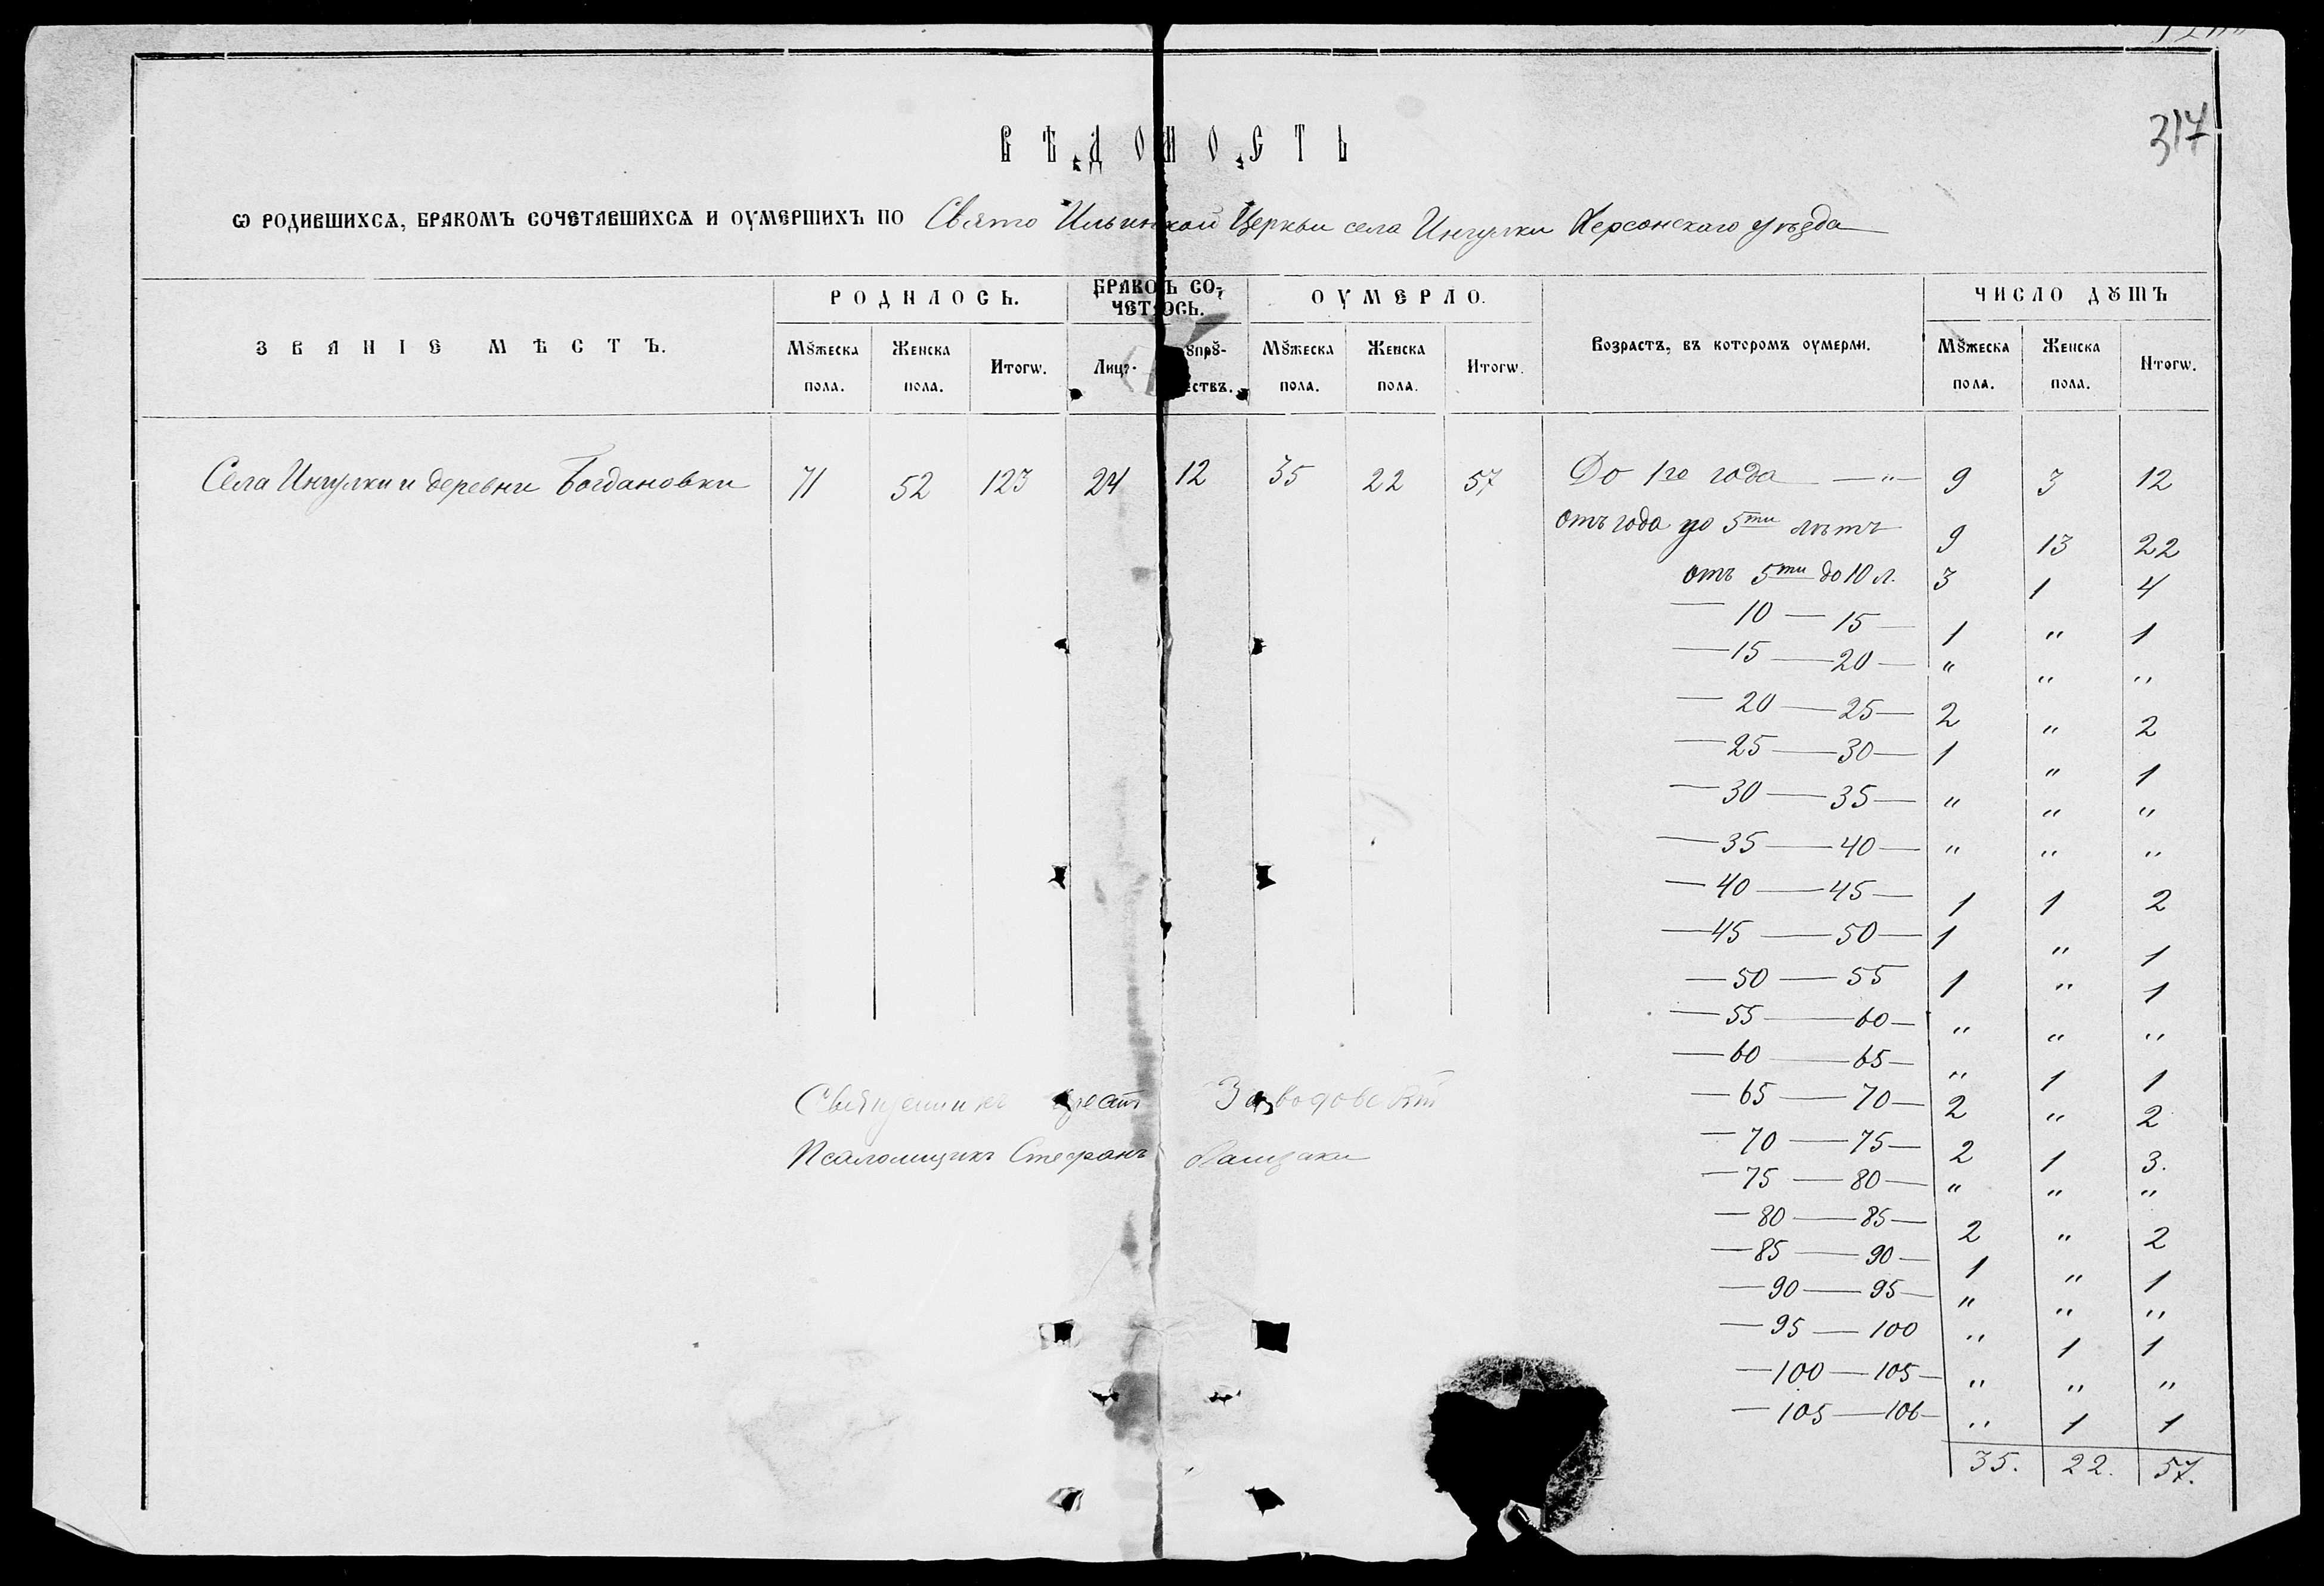 317
ВѢДОМОСТЬ
Ѡ РОДИВШИХСѦ, БРАКОМЪ СОЧЕТАВШИХСѦ И ОУМЕРШИХЪ ПО Свято Ильинской Церкви села Ингулки Херсонскаго уѣзда
ЗВАНІЕ МѢСТЪ. РОДИЛОСЬ. БРАКОМЪ СО- ОУМЕРЛО. Возрастъ, въ которомъ оумерли. ЧИСЛО ДꙊШЪ
ЧЕТАЛОСЬ.
Мꙋжеска Женска Итогѡ. Лицъ. Сꙋпрꙋ- Мꙋжеска Женска Итогѡ. Мꙋжеска Женска Итогѡ.
пола. пола. жествъ. пола. пола. пола. пола.
Села Ингулки и деревни Богдановки 71 52 123 24 12 35 22 57 До 1го года — " — 9 3 12
отъ года до 5ти лѣтъ 9 13 22
отъ 5ти до 10 л. 3 1 4
— 10 — 15 — 1 " 1
— 15 — 20 — " " "
— 20 — 25 — 2 " 2
— 25 — 30 — 1 " 1
— 30 — 35 — " " "
— 35 — 40 — " " "
— 40 — 45 — 1 1 2
— 45 — 50 — 1 " 1
— 50 — 55 1 " 1
— 55 — 60 — " " "
— 60 — 65 — " 1 1
— 65 — 70 — 2 " 2
— 70 — 75 — 2 1 3.
— 75 — 80 — " " "
— 80 — 85 — 2 " 2
— 85 — 90 — 1 " 1
— 90 — 95 — " " "
— 95 — 100 " 1 1
— 100 — 105 — " " "
— 105 — 106 — " 1 1
35. 22. 57.
Священникъ
Псаломщикъ Стефанъ